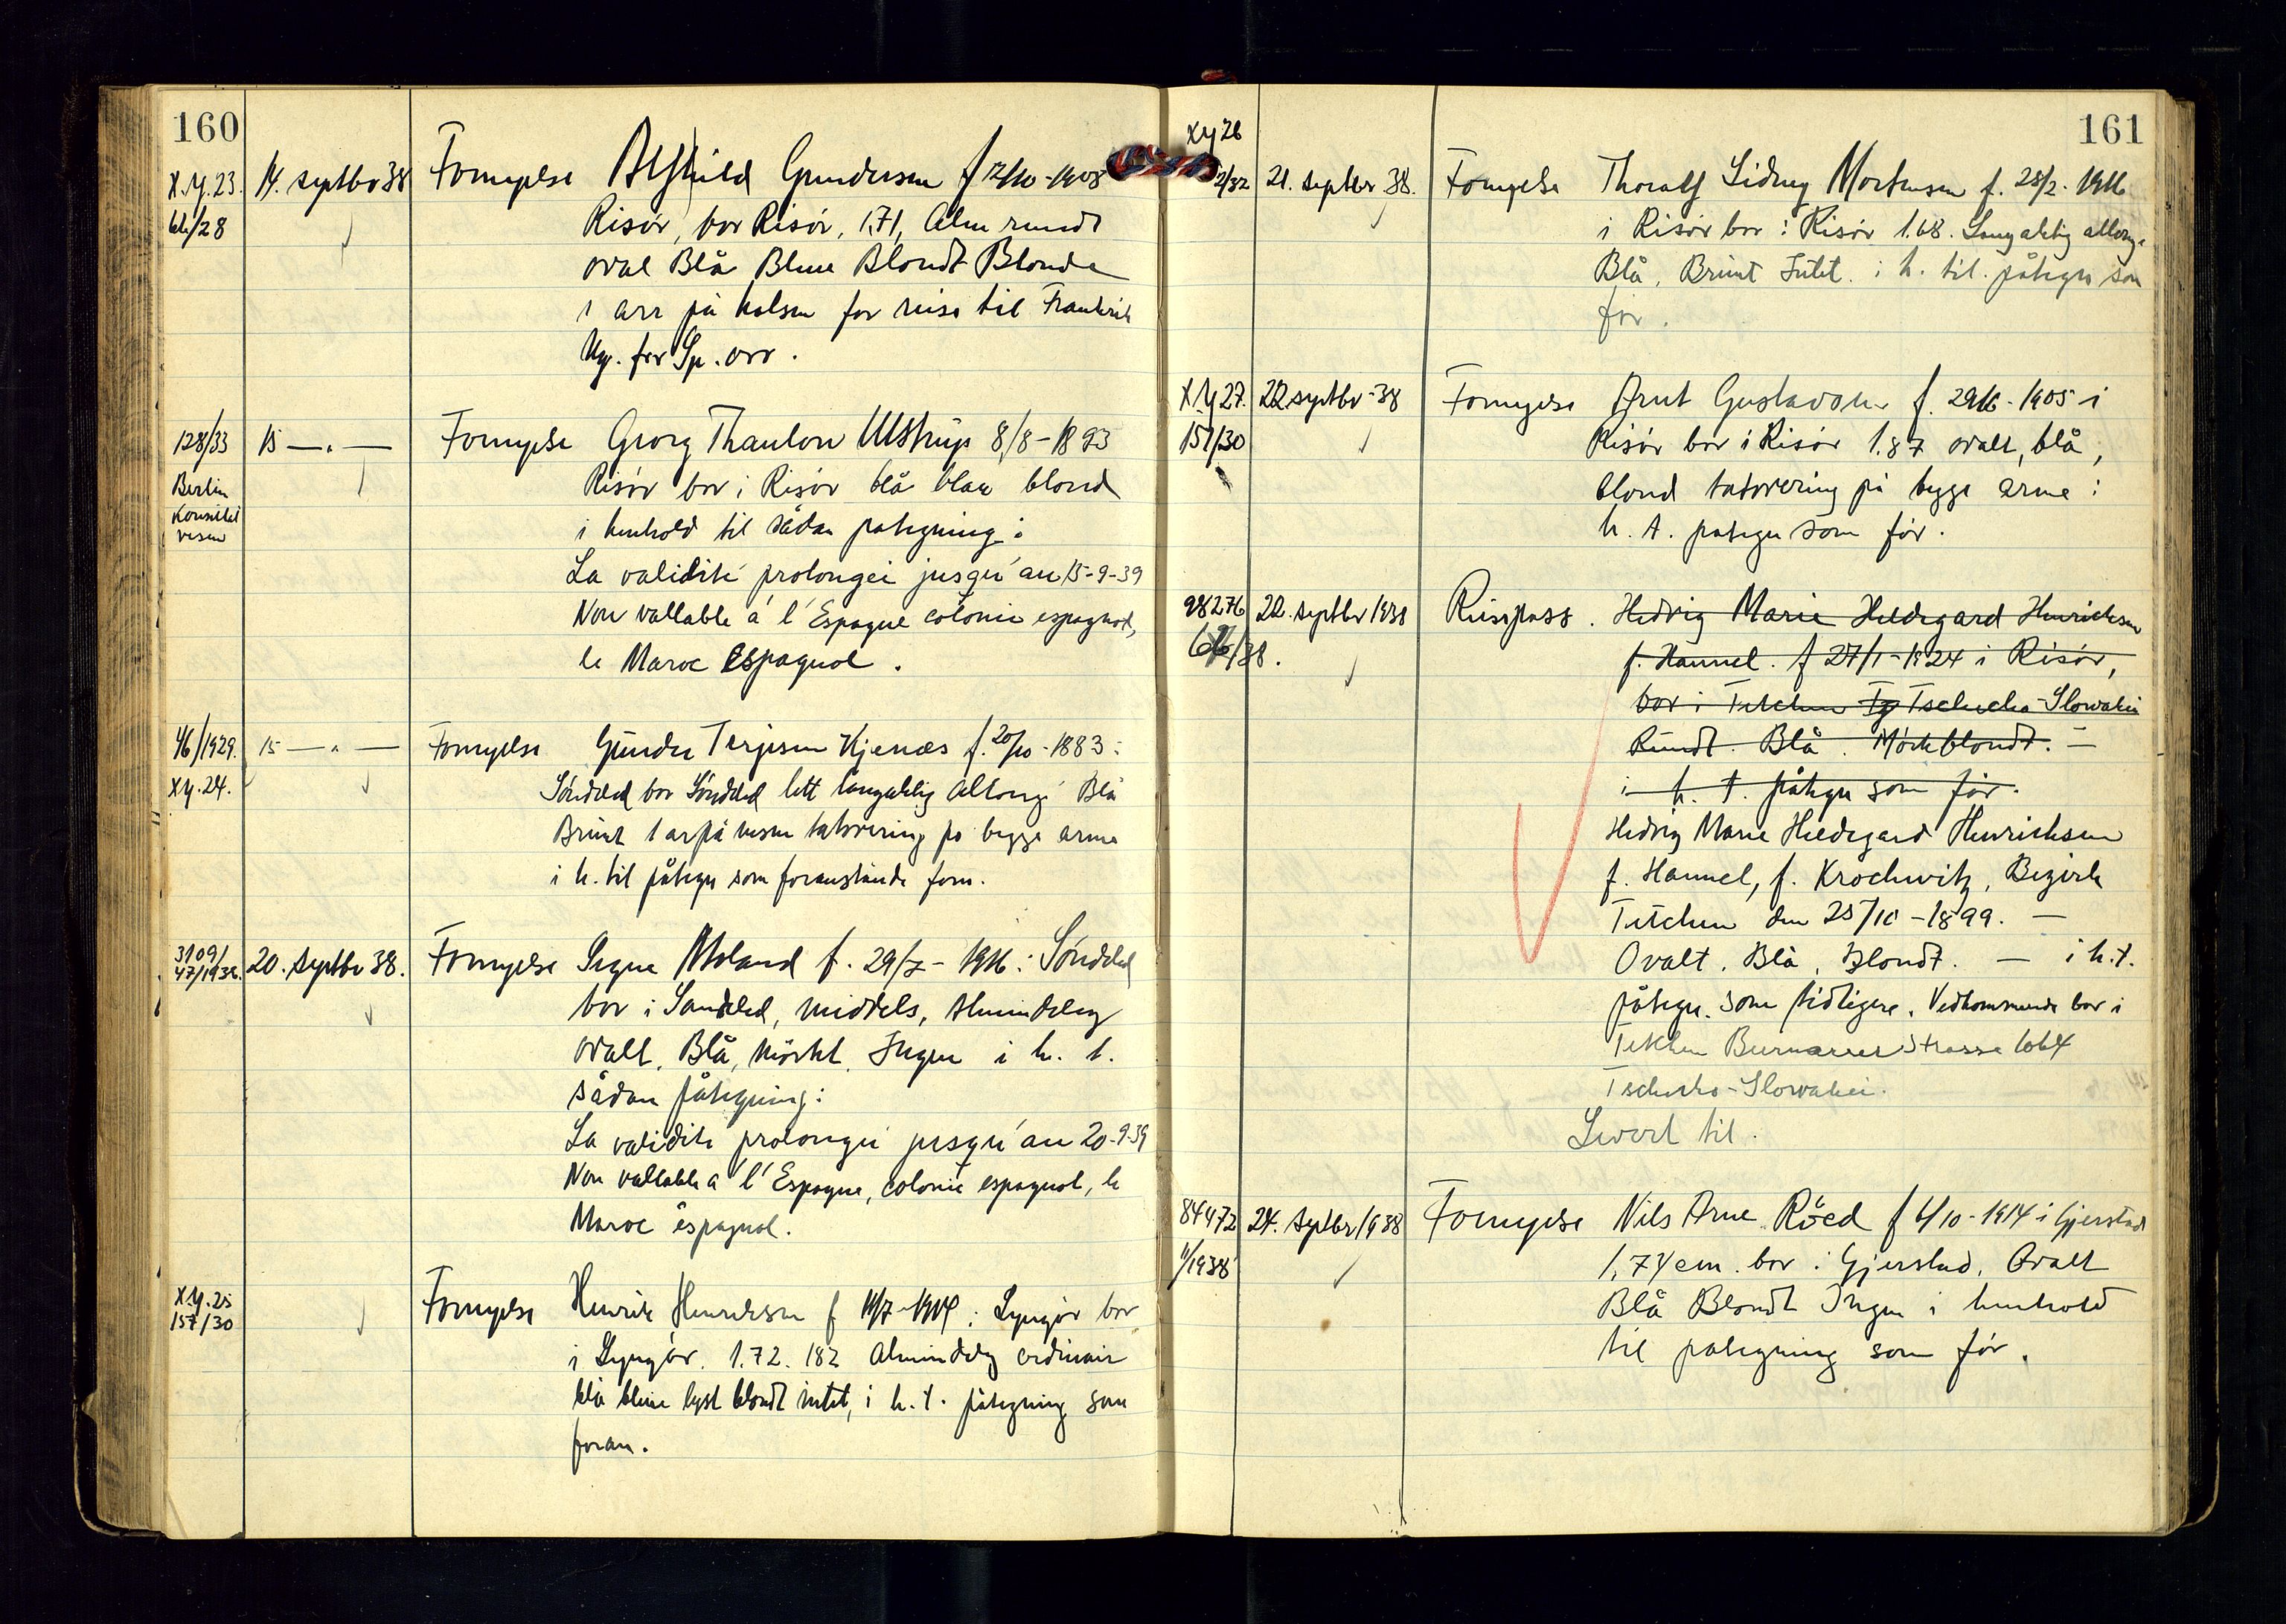 160
X.Y.23. 14. septbr 38 Fornyelse Alfhild Gundersen f 12/10-1905
66/28 Risør, bor Risør, 1,71, Alm rundt
oval Blå Blue Blondt Blonde
1 arr på halsen for reise til Frankrik
Ug. for Sp. orr.
128/33 15 —〃— Fornyelse Georg Thaulow Ulstrup 8/8-1893
Berlin Risør bor i Risør blå blau blond
Konsulat i henhold til sådan pategning:
vesen
La validité prolongéi jusqu'au 15-9-39
Non vallable á l'Espagne colonie espagnol,
le Maroc Espagnol.
46/1929. 15 —〃— Fornyelse Gunder Terjesen Kjenæs f. 20/10-1883 i
XY.24. Söndeled bor Söndeled lett langaktig Allongé Blå
Brunt 1 ar på nesen tatovering på begge arme
i h. til påtegn som foranstående forn.
3109/ 20. septbr 38. Fornyelse Signe Moland f. 29/7-1916 i Söndeled
47/1938.
bor i Sandeled, middels, Almindelig
ovalt, Blå, mörket, Ingen i h. t.
sådan påtegning:
La validite prolongéi jusqu'au 20-9-39
Non vallable a l'Espagne, colonie espagnol, le
Maroc espagnol.
X.Y.25 Fornyelse Henrik Henriksen f 11/7-1914 i Lyngör bor
157/30
i Lyngör. 1.72. 182 Almindelig ordinair
blå blue lyst blondt intet, i h. t. påtegning som
foran.
161
XY 26
2/32 21. septbr 38. Fornyelse Thoralf Sidney Mortensen f. 28/2-1916
i Risör bor i Risör 1.68. Langaktig allonge
Blå, Brunt Intet. i h. til. påtegn som
för.
X.Y 27. 22 septbr-38 Fornyelse Arnt Gustavsen f. 29/6-1905 i
151/30 Risör bor i Risör 1.87 ovalt, blå,
blond tatovering på begge arme i
h. t. pategn som för.
98276 22. septbr 1938 Reisepass. Hedvig Marie Hildegard Henrichsen
66/38. f. Hannel. f 27/1-1924 i Risör,
bor i Tetchen Tschecho-Slowakei
Rundt. Blå. Mörkblondt. —
i h. t. påtegn som för.
Hedvig Marie Hildegard Henrichsen
f. Hannel, f. Krochwitz, Bezirk
Tetchen den 25/10-1899. —
Ovalt, Blå, Blondt. — i h.t.
påtegn. som tidligere. Vedkommende bor i
Tetchen Strasse 1064
Tschecho-Slowakei.
Levert til.
84472 24. septbr 1938 Fornyelse Nils Arne Röed f 6/10-1914 i Gjerstad
11/1938 1,74 cm. bor i Gjerstad, Ovalt
Blå Blondt Ingen i henhold
til pategning som för.